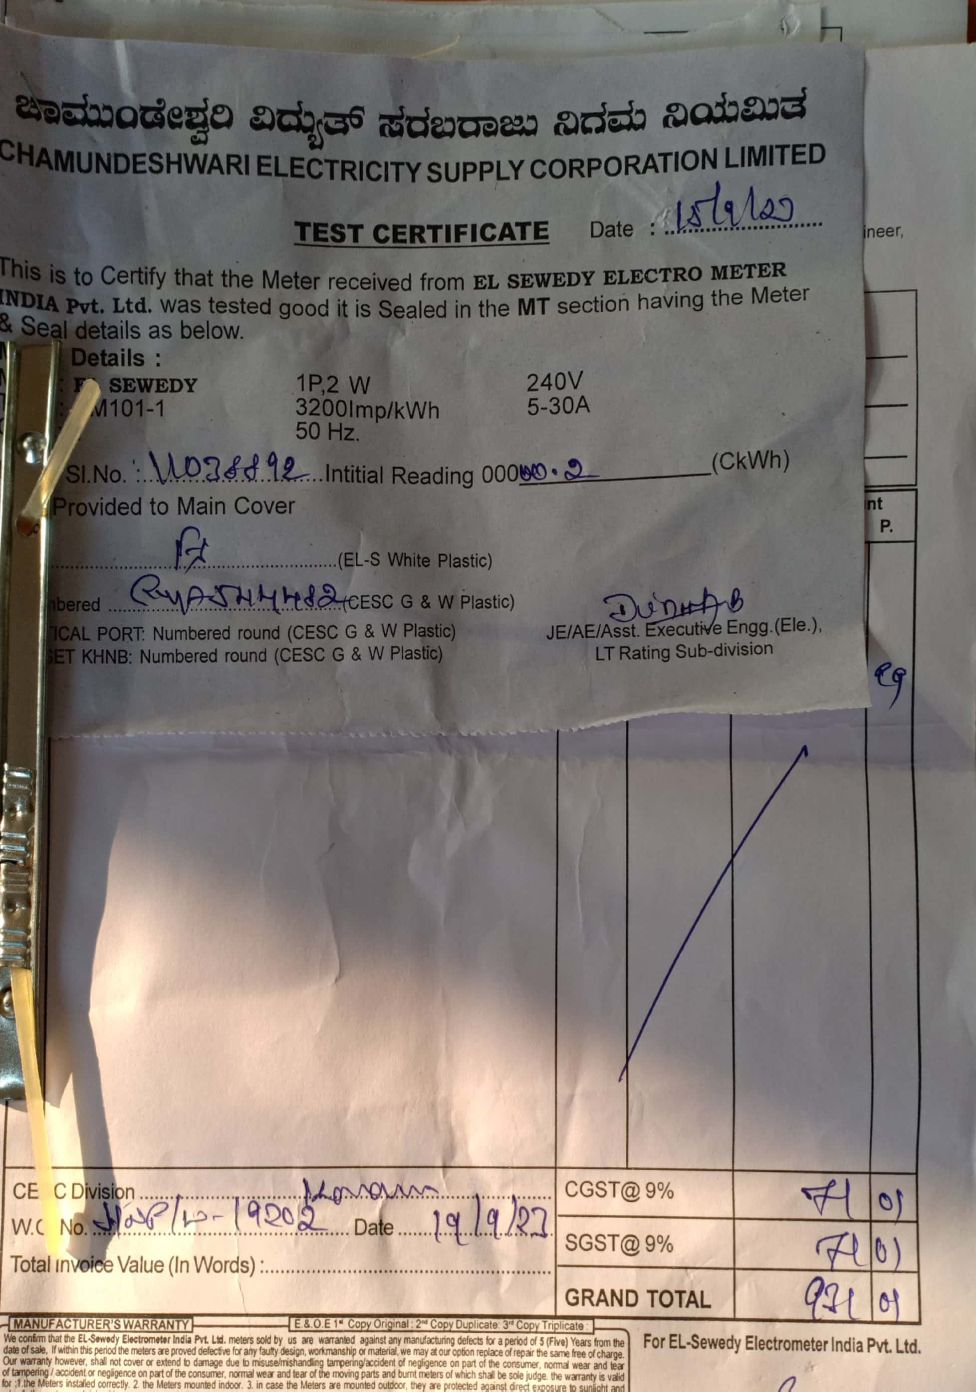 ಚಾಮುಂಡೇಶ್ವರಿ ವಿದ್ಯುತ್ ಸರಬರಾಜು ನಿಗಮ ನಿಯಮಿತ
CHAMUNDESHWARI ELECTRICITY SUPPLY CORPORATION LIMITED
TEST CERTIFICATE Date : 15/9/23
ineer,
This is to Certify that the Meter received from EL SEWEDY ELECTRO METER
INDIA Pvt. Ltd. was tested good it is Sealed in the MT section having the Meter
& Seal details as below.
Details :
: EL SEWEDY 1P,2 W 240V
: M101-1 3200Imp/kWh 5-30A
50 Hz.
Sl.No. : 11038892 Intitial Reading 00000.2 (CkWh)
Provided to Main Cover
nt
P.
(EL-S White Plastic)
bered (CESC G & W Plastic)
ICAL PORT: Numbered round (CESC G & W Plastic)
ET KHNB: Numbered round (CESC G & W Plastic)
JE/AE/Asst. Executive Engg.(Ele.),
LT Rating Sub-division
CE C Division
CGST@ 9% 71 01
W. No. 19202 Date 19/9/23
SGST@ 9% 71 01
Total Invoice Value (In Words) :
GRAND TOTAL 931 01
MANUFACTURER'S WARRANTY E & O.E 1st Copy Original : 2nd Copy Duplicate: 3rd Copy Triplicate :
We confirm that the EL-Sewedy Electrometer India Pvt. Ltd. meters sold by us are warranted against any manufacturing defects for a period of 5 (Five) Years from the
date of sale, If within this period the meters are proved defective for any faulty design, workmanship or material, we may at our option replace of repair the same free of charge.
Our warranty however, shall not cover or extend to damage due to misuse/mishandling tampering/accident of negligence on part of the consumer, normal wear and tear
of tampering / accident or negligence on part of the consumer, normal wear and tear of the moving parts and burnt meters of which shall be sole judge. the warranty is valid
for :1.the Meters installed correctly. 2. the Meters mounted indoor. 3. in case the Meters are mounted outdoor, they are protected against direct exposure to sunlight and
For EL-Sewedy Electrometer India Pvt. Ltd.